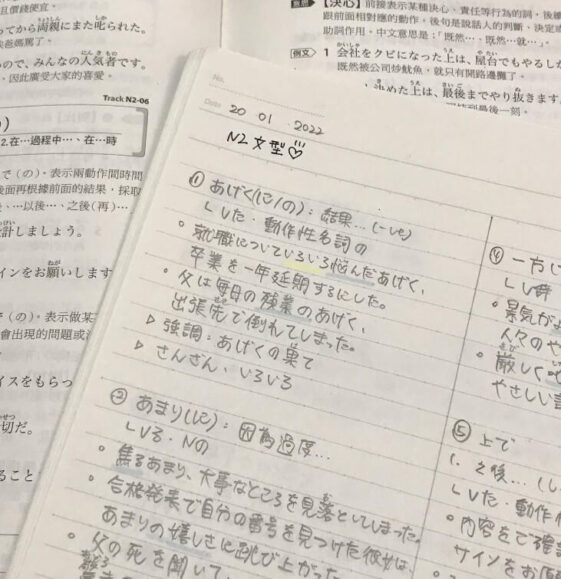 てから両親にまた叱られた。
爸媽罵了。
ので、みんなの人気者です。
，因此廣受大家的喜愛。
Track N2-06
2.在…過程中…、在…時
で（の）．表示兩動作間時間
後面再根據前面的結果，採取
…以後…、之後(再)…
計しましょう。
インをお願いします
で（の）．表示做某
會出現的問題或
イスをもらっ
切だ。
ること
【決心】前接表示某種決心、責任等行為的詞，後
跟前面相對應的動作。後句是說話人的判斷、決定
助詞作用。中文意思是：「既然…，既然…就…」。
例文 1 会社をクビになった上は、屋台でもやるしか
既然被公司炒魷魚，就只有開路邊攤了。
決めた上は、最後までやり抜きます
No.
Date 20 01 2022
N2 文型♡
① あげく(に/の)：結果… (-ve)
Vた・動作性名詞の
。就職についていろいろ悩んだあげく、
卒業を一年延期するにした。
。父は毎日の残業のあげく、
出張先で倒れてしまった。
▷ 強調：あげくの果て
▷ さんざん、いろいろ
② あまり(に)：因為過度…
Vる・Nの
。焦るあまり、大事なところを見落としてしまった。
。合格発表で自分の番号を見つけた彼女は、
あまりの嬉しさに跳び上がった。
。父の死を聞いて、
④ 一方
Vる時
。景気が
人々のや
。厳しく
やさしい
⑤ 上で
1. 之後…
Vた・動作
。内容をご確
サインをお願